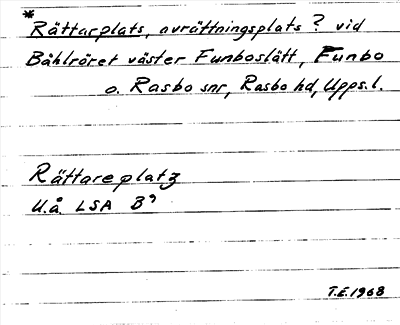 * Rättarplats, avrättningsplats? vid
Båhlröret väster Funboslätt, Funbo
o. Rasbo snr, Rasbo hd, Upps.l.
Rättareplatz
U.å. LSA B9
T.E. 1968